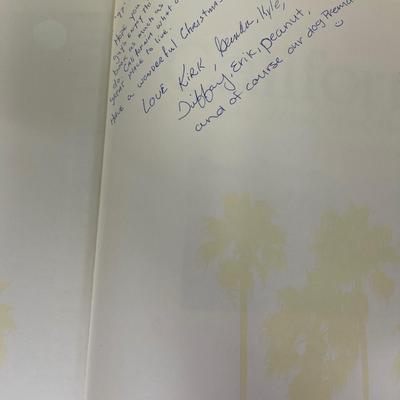 Hope you
guys enjoy this
book as much as
do. California what a
great place to live.
Have a wonderful Christmas
Love Kirk, Brenda, Kyle,
Tiffany, Erik, peanut,
and of course our dog
☺